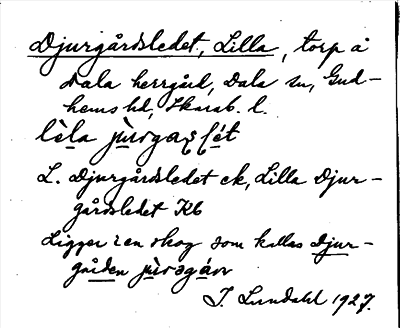 Djurgårdsledet, Lilla, torp å
Dala herrgård, Dala sn, Gud-
hems hd, Skarab. l.
lɩ̀la
L. Djurgårdsledet ek, Lilla Djur-
gårdsledet Kb
Ligger i en skog som kallas Djur-
gården
I. Lundahl 1927.